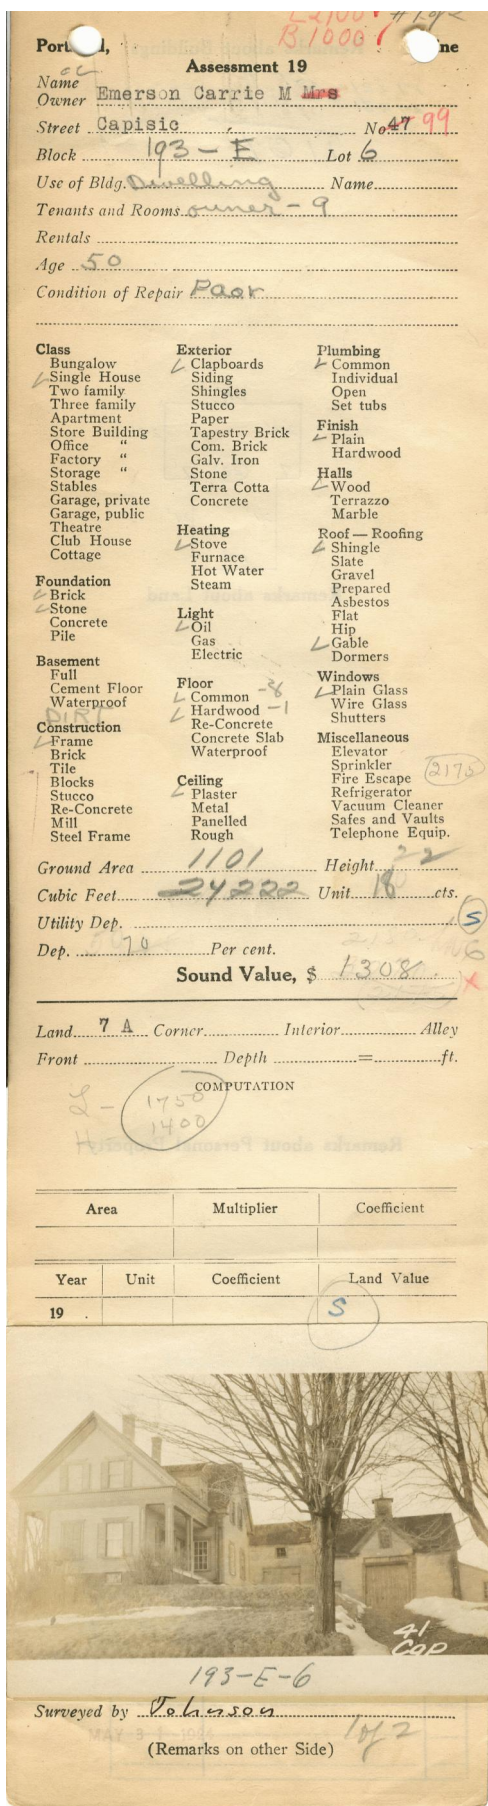 L2100 #1 of 2
B1000
Portland, Maine
Assessment 19
Name
Owner Emerson Carrie M Mrs
Street Capisic No 47 99
Block 193 - E Lot 6
Use of Bldg. Dwelling Name
Tenants and Rooms owner - 9
Rentals
Age 50
Condition of Repair Poor
Class
Bungalow
✓ Single House
Two family
Three family
Apartment
Store Building
Office "
Factory "
Storage "
Stables
Garage, private
Garage, public
Theatre
Club House
Cottage
Foundation
✓ Brick
✓ Stone
Concrete
Pile
Basement
Full
Cement Floor
Waterproof
DIRT
Construction
✓ Frame
Brick
Tile
Blocks
Stucco
Re-Concrete
Mill
Steel Frame
Exterior
✓ Clapboards
Siding
Shingles
Stucco
Paper
Tapestry Brick
Com. Brick
Galv. Iron
Stone
Terra Cotta
Concrete
Heating
✓ Stove
Furnace
Hot Water
Steam
Light
✓ Oil
Gas
Electric
Floor
✓ Common - 8
✓ Hardwood - 1
Re-Concrete
Concrete Slab
Waterproof
Ceiling
✓ Plaster
Metal
Panelled
Rough
Plumbing
✓ Common
Individual
Open
Set tubs
Finish
✓ Plain
Hardwood
Halls
✓ Wood
Terrazzo
Marble
Roof — Roofing
✓ Shingle
Slate
Gravel
Prepared
Asbestos
Flat
Hip
✓ Gable
Dormers
Windows
✓ Plain Glass
Wire Glass
Shutters
Miscellaneous
Elevator
Sprinkler
Fire Escape
Refrigerator
Vacuum Cleaner
Safes and Vaults
Telephone Equip.
2175
Ground Area 1101 Height 22
Cubic Feet 24222 Unit 18 cts.
Utility Dep. S
Dep. 70 Per cent.
Sound Value, $ 1308
Land 7 A Corner Interior Alley
Front Depth = ft.
COMPUTATION
L - 1750
H 1400
Area Multiplier Coefficient
Year Unit Coefficient Land Value
19 . S
41
Cap
193-E-6
Surveyed by Johnson
1 of 2
(Remarks on other Side)